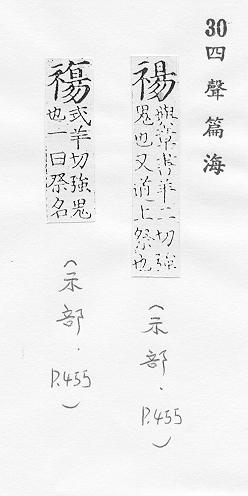 30
四聲篇海
禓
與常書羊二切強
鬼也又道上祭也
（示部．P.455）
式羊切強鬼
也一曰祭名
（示部．P.455）